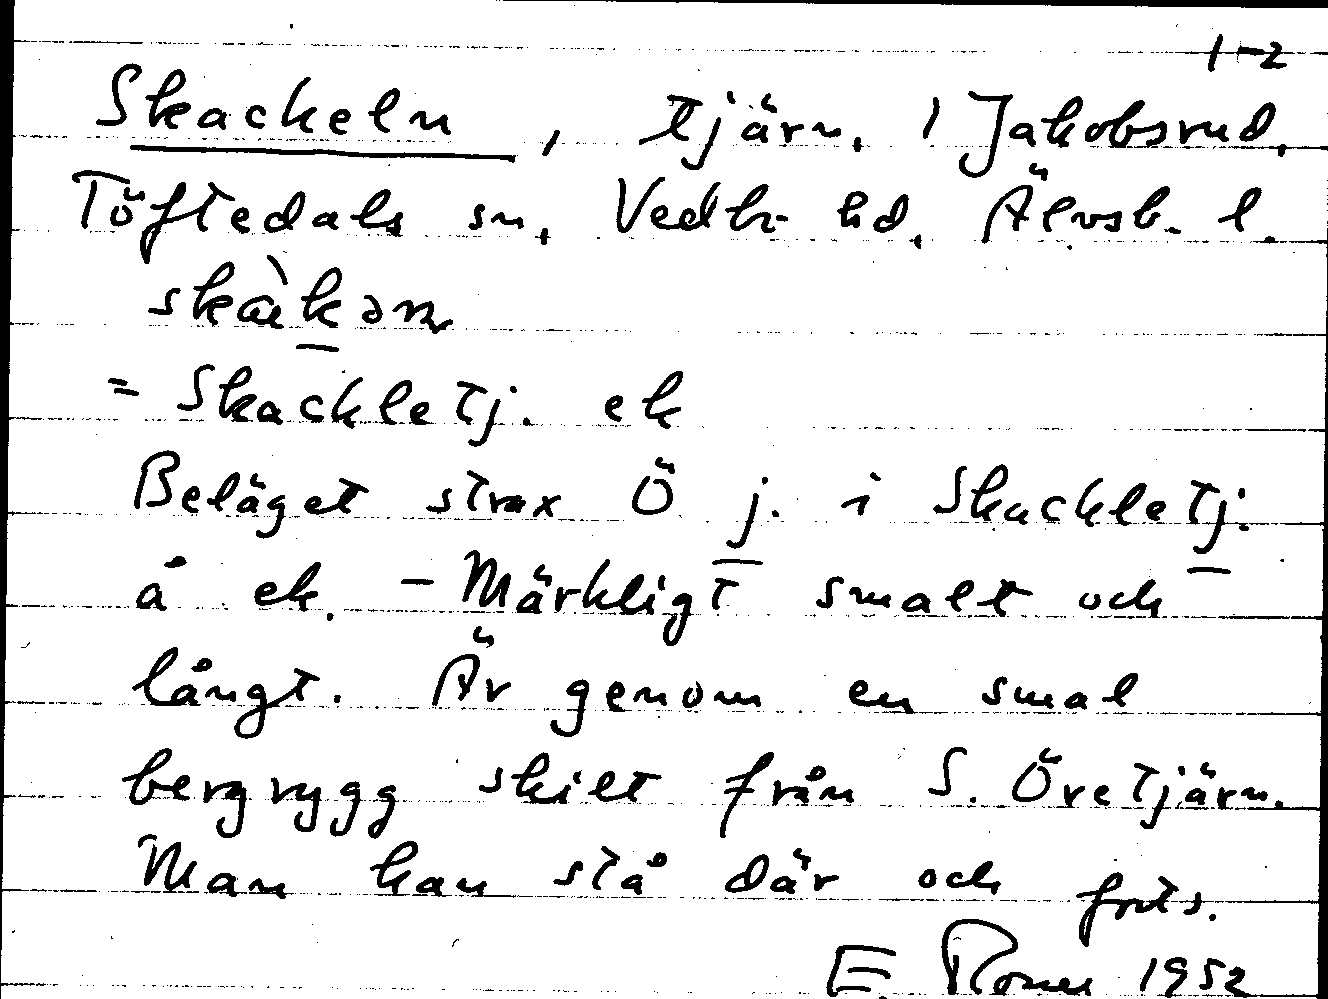 1-2
Skackeln, tjärn, 1 Jakobsrud,
Töftedals sn, Vedb. hd, Älvsb. l.
= Skackletj. ek
Beläget strax Ö j. i Skackletj.
å ek. - Märkligt smalt och
långt. Är genom en smal
bergrygg skilt från S. Övretjärn.
Man kan stå där och forts.
E 1952